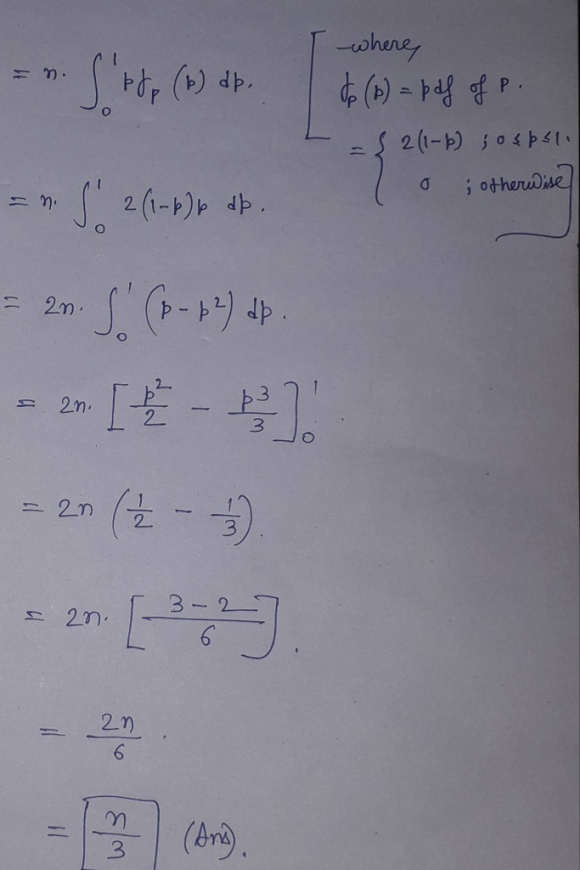 = n. ∫₀¹ p f_p (p) dp.
[ where,
f_p (p) = pdf of P.
= { 2(1-p) ; 0 ≤ p ≤ 1.
0 ; otherwise ]
= n. ∫₀¹ 2(1-p)p dp.
= 2n. ∫₀¹ (p - p²) dp.
= 2n. [ p²/2 - p³/3 ]₀¹.
= 2n (1/2 - 1/3).
= 2n. [ (3-2)/6 ].
= 2n/6 .
= n/3 (Ans).